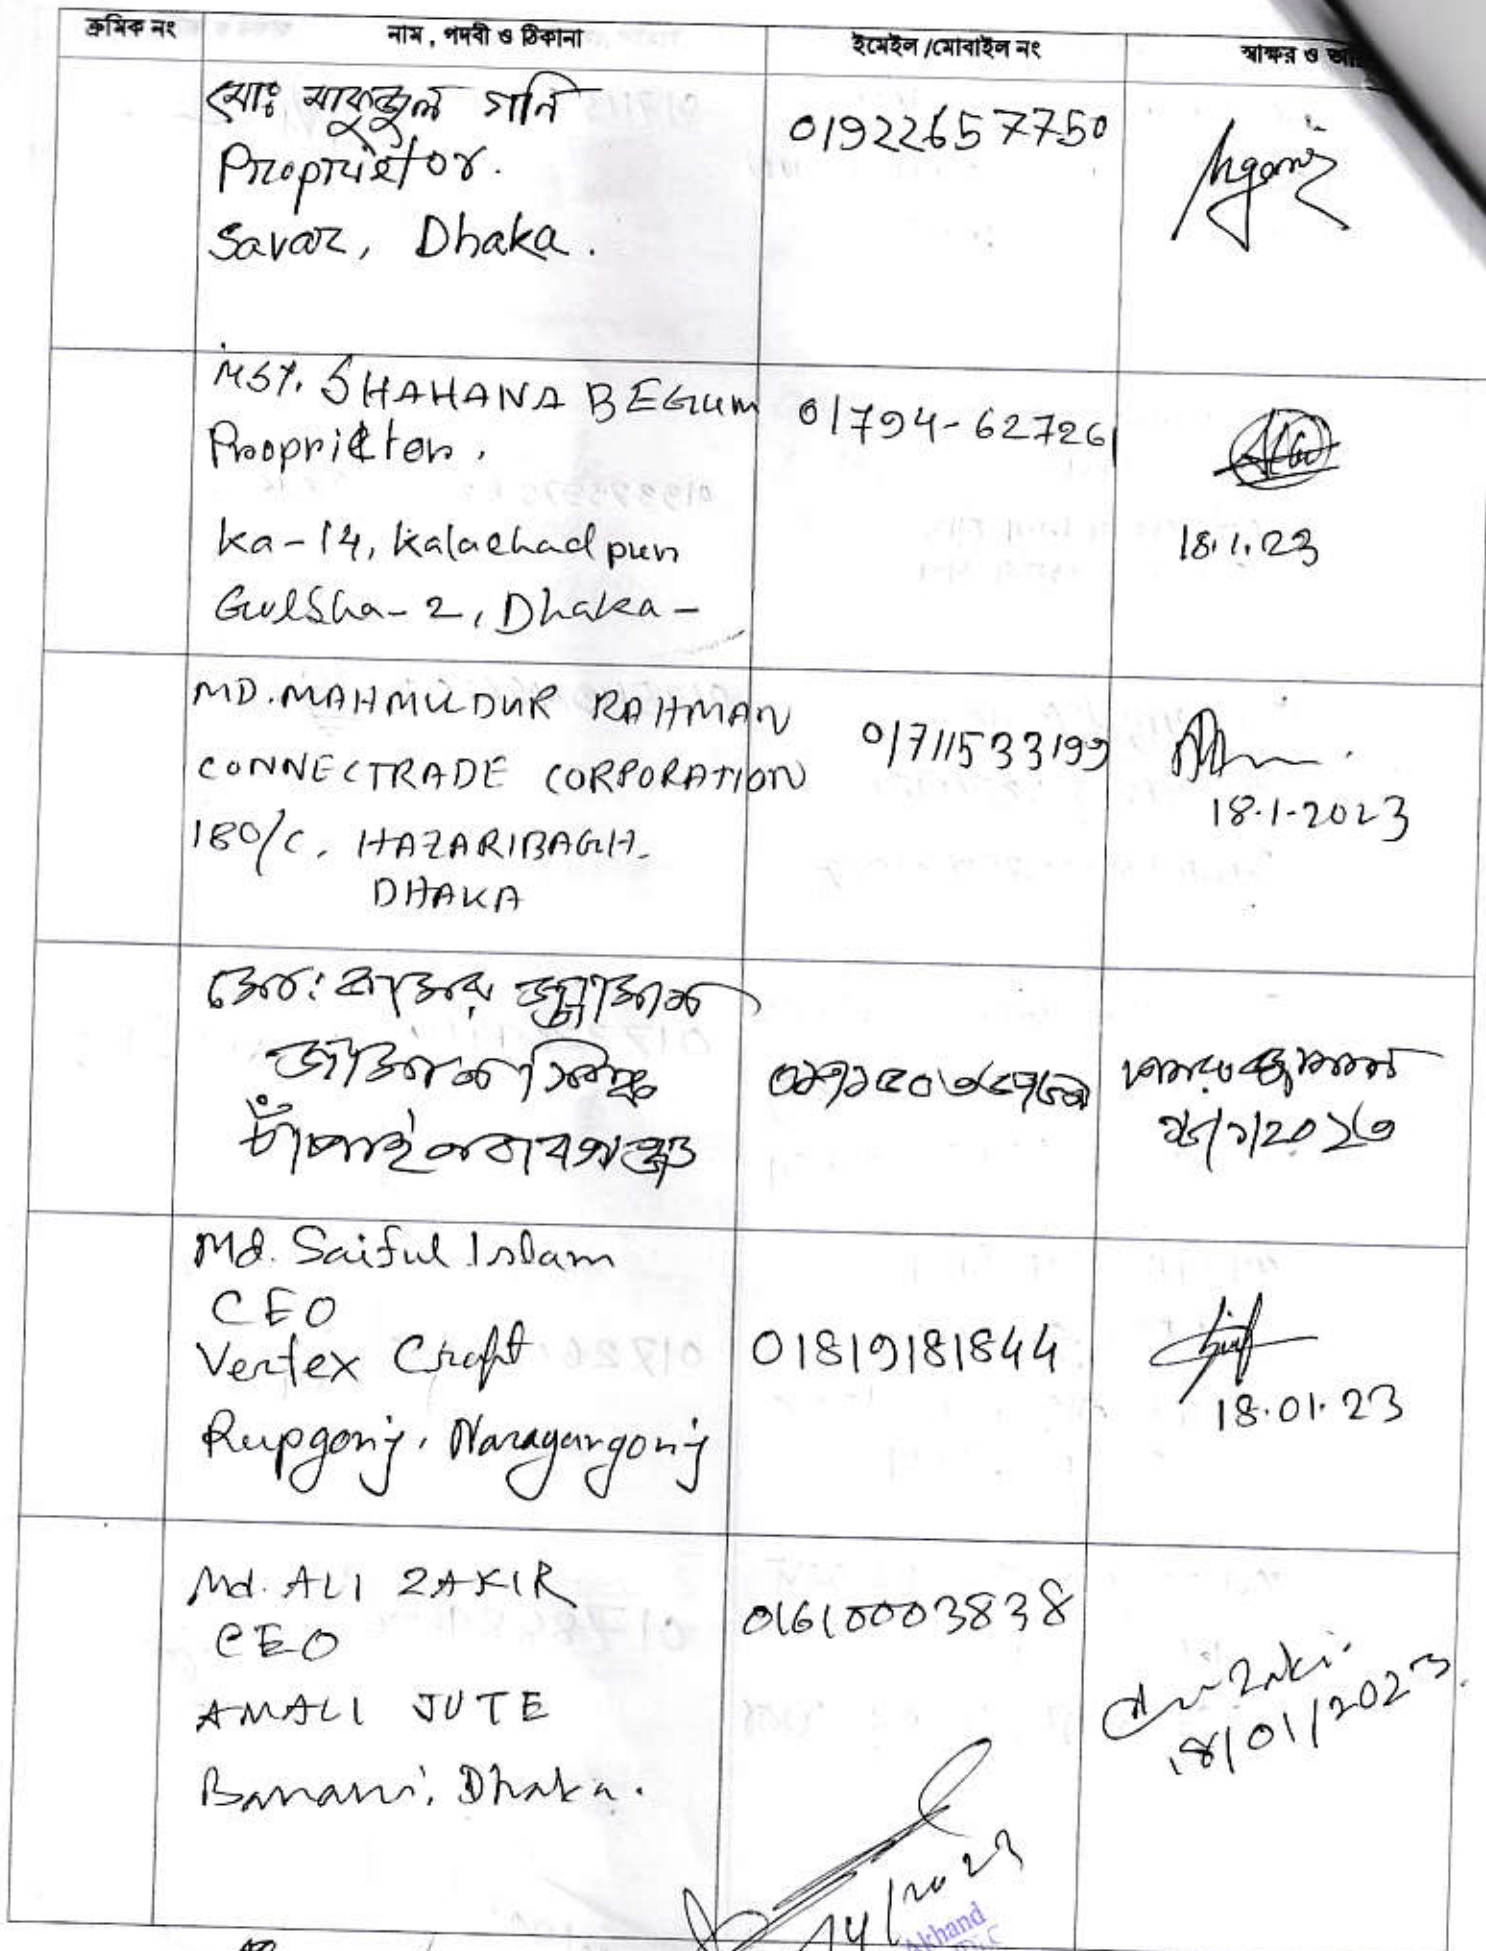 ক্রমিক নং নাম, পদবী ও ঠিকানা ইমেইল /মোবাইল নং স্বাক্ষর ও
মোঃ মাকছুল গনি
Proprietor.
Savar, Dhaka.
01922657750
MST. SHAHANA BEGUM
Proprietor.
Ka-14, Kalachadpur
Gulsha-2, Dhaka-
01794-627261
18.1.23
MD. MAHMUDUR RAHMAN
CONNECTRADE CORPORATION
180/C, HAZARIBAGH.
DHAKA
01711533199
18.1.2023
মোঃ
চাঁপাই নবাবগঞ্জ
Md. Saiful Islam
CEO
Vertex Craft
Rupgonj, Narayangonj
01819181844
18.01.23
Md. ALI ZAKIR
CEO
AMALI JUTE
Banani, Dhaka.
01610003838
18/01/2023
Akhand